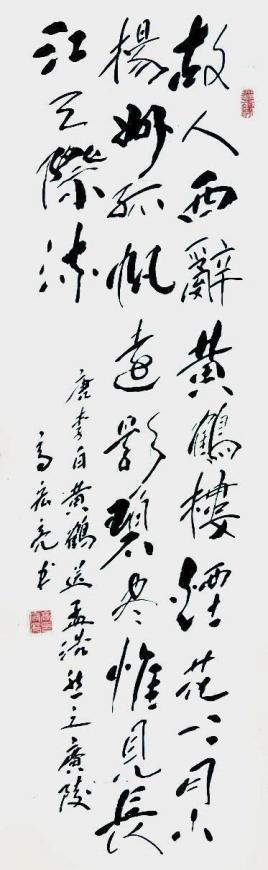 故人西辭黄鶴樓煙花三月下
楊州孤帆遠影碧尽惟見長
江天際流
唐李白黄鶴送孟浩然之廣陵
高宏亮书